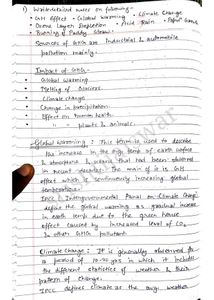 1) Write detailed notes on following -
• GH Effect • Global Warming • Climate Change
• Ozone Layer Depletion • Acid Rain
• Burning of Paddy Straw
Sources of GHGs are Industrial & automobile
pollution mainly.
Impact of GHGs
• Global Warming
• Melting of Glaciers
• Climate change
• Change in precipitation
• Effect on human health
• " " plants & animals
Global Warming : This term is used to describe
the increase in the avg. temp of earth surface
& atmosphere & oceans that had been observed
in recent decades. The main of it is GH
effect which is continuously increasing global
temperature.
IPCC (Intergovernmental Panel on Climate Change)
define the global warming as gradual increase
in earth temp due to the green house
effect caused by increased level of CO2
& other GHGs pollutant.
Climate Change : It is generally observed for
a period of 10-20 yrs in which it includes
the different statistics of weather & their
pattern of change.
IPCC defines climate as the avg. weather